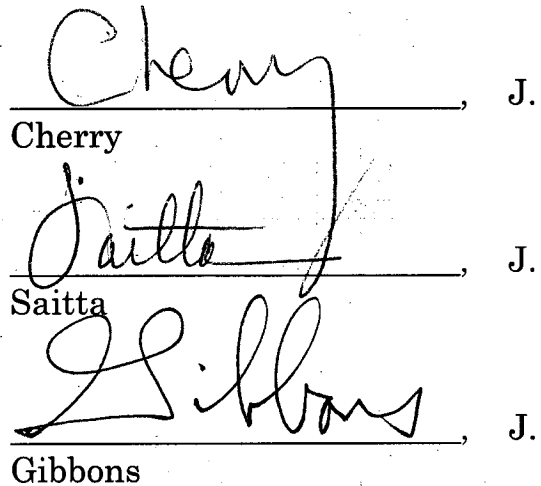 Cherry
, J.
Cherry
Saitta
, J.
Saitta
Gibbons
, J.
Gibbons